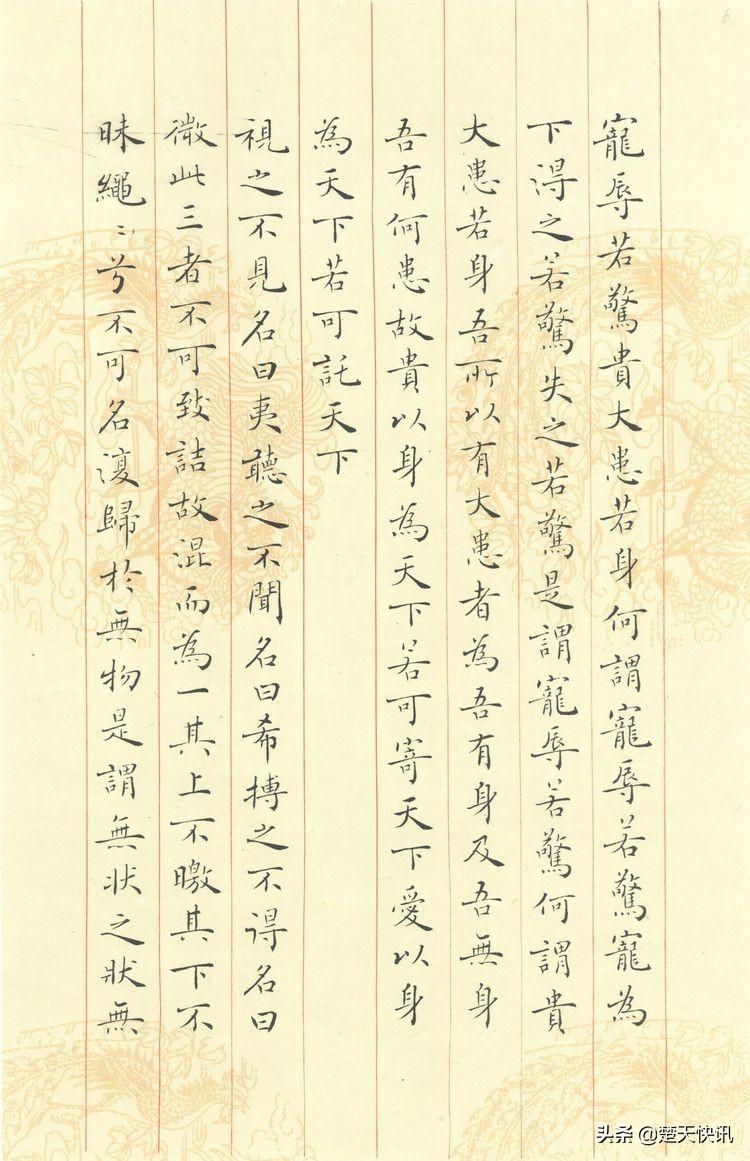 寵辱若驚貴大患若身何謂寵辱若驚寵為
下得之若驚失之若驚是謂寵辱若驚何謂貴
大患若身吾所以有大患者為吾有身及吾無身
吾有何患故貴以身為天下若可寄天下愛以身
為天下若可託天下
視之不見名曰夷聽之不聞名曰希搏之不得名曰
微此三者不可致詰故混而為一其上不皦其下不
昧繩〻兮不可名復歸於無物是謂無狀之狀無
6
头条 @楚天快讯